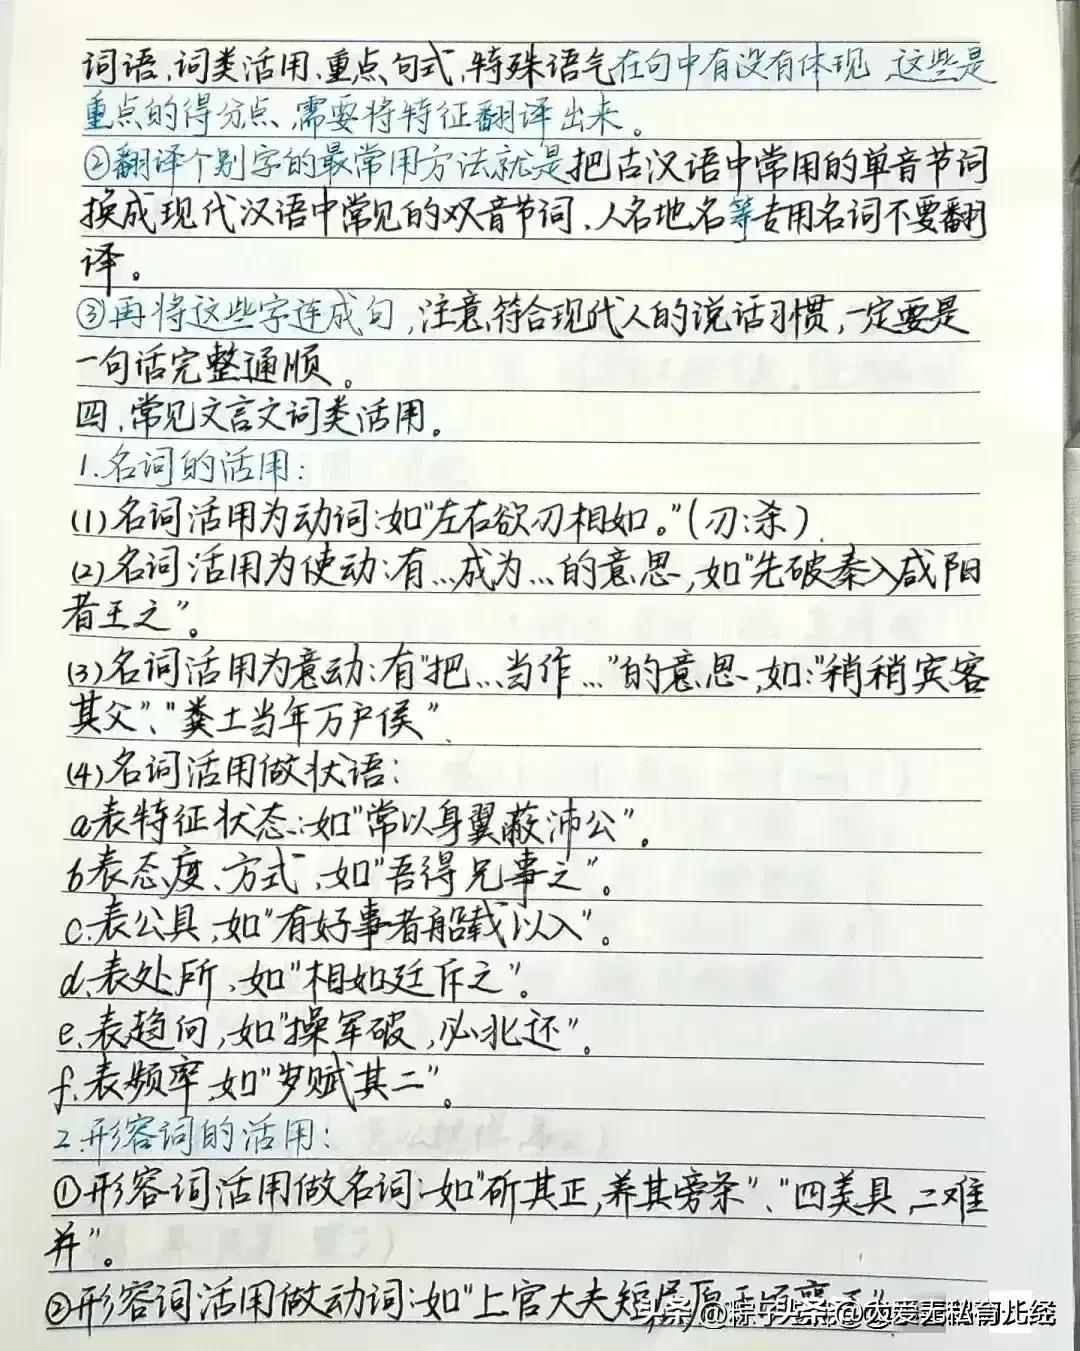 词语、词类活用、重点句式、特殊语气在句中有没有体现,这些是
重点的得分点,需要将特征翻译出来。
②翻译个别字的最常用方法就是把古汉语中常用的单音节词
换成现代汉语中常见的双音节词、人名地名等专用名词不要翻
译。
③再将这些字连成句,注意、符合现代人的说话习惯,一定要是
一句话完整通顺。
四、常见文言文词类活用。
1.名词的活用:
(1)名词活用为动词:如"左右欲刃相如。"(刃:杀)
(2)名词活用为使动:有…成为…的意思,如"先破秦入咸阳
者王之"。
(3)名词活用为意动:有"把…当作…"的意思,如:"稍稍宾客
其父"、"粪土当年万户侯"
(4)名词活用做状语:
a表特征状态:如"常以身翼蔽沛公"。
b表态度、方式,如"吾得兄事之"。
c.表公具,如"有好事者船载以入"。
d、表处所,如"相如廷斥之"。
e.表趋向,如"操军破,必北还"。
f.表频率,如"岁赋其二"。
2.形容词的活用:
①形容词活用做名词:如"斫其正,养其旁条"、"四美具,二难
并"。
②形容词活用做动词:如"上官大夫短屈原于顷襄王"